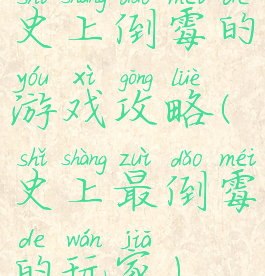 shǐ shàng dǎo méi de
史上倒霉的
yóu xì gōng lüè
游戏攻略(
shǐ shàng zuì dǎo méi
史上最倒霉
de wán jiā
的玩家)